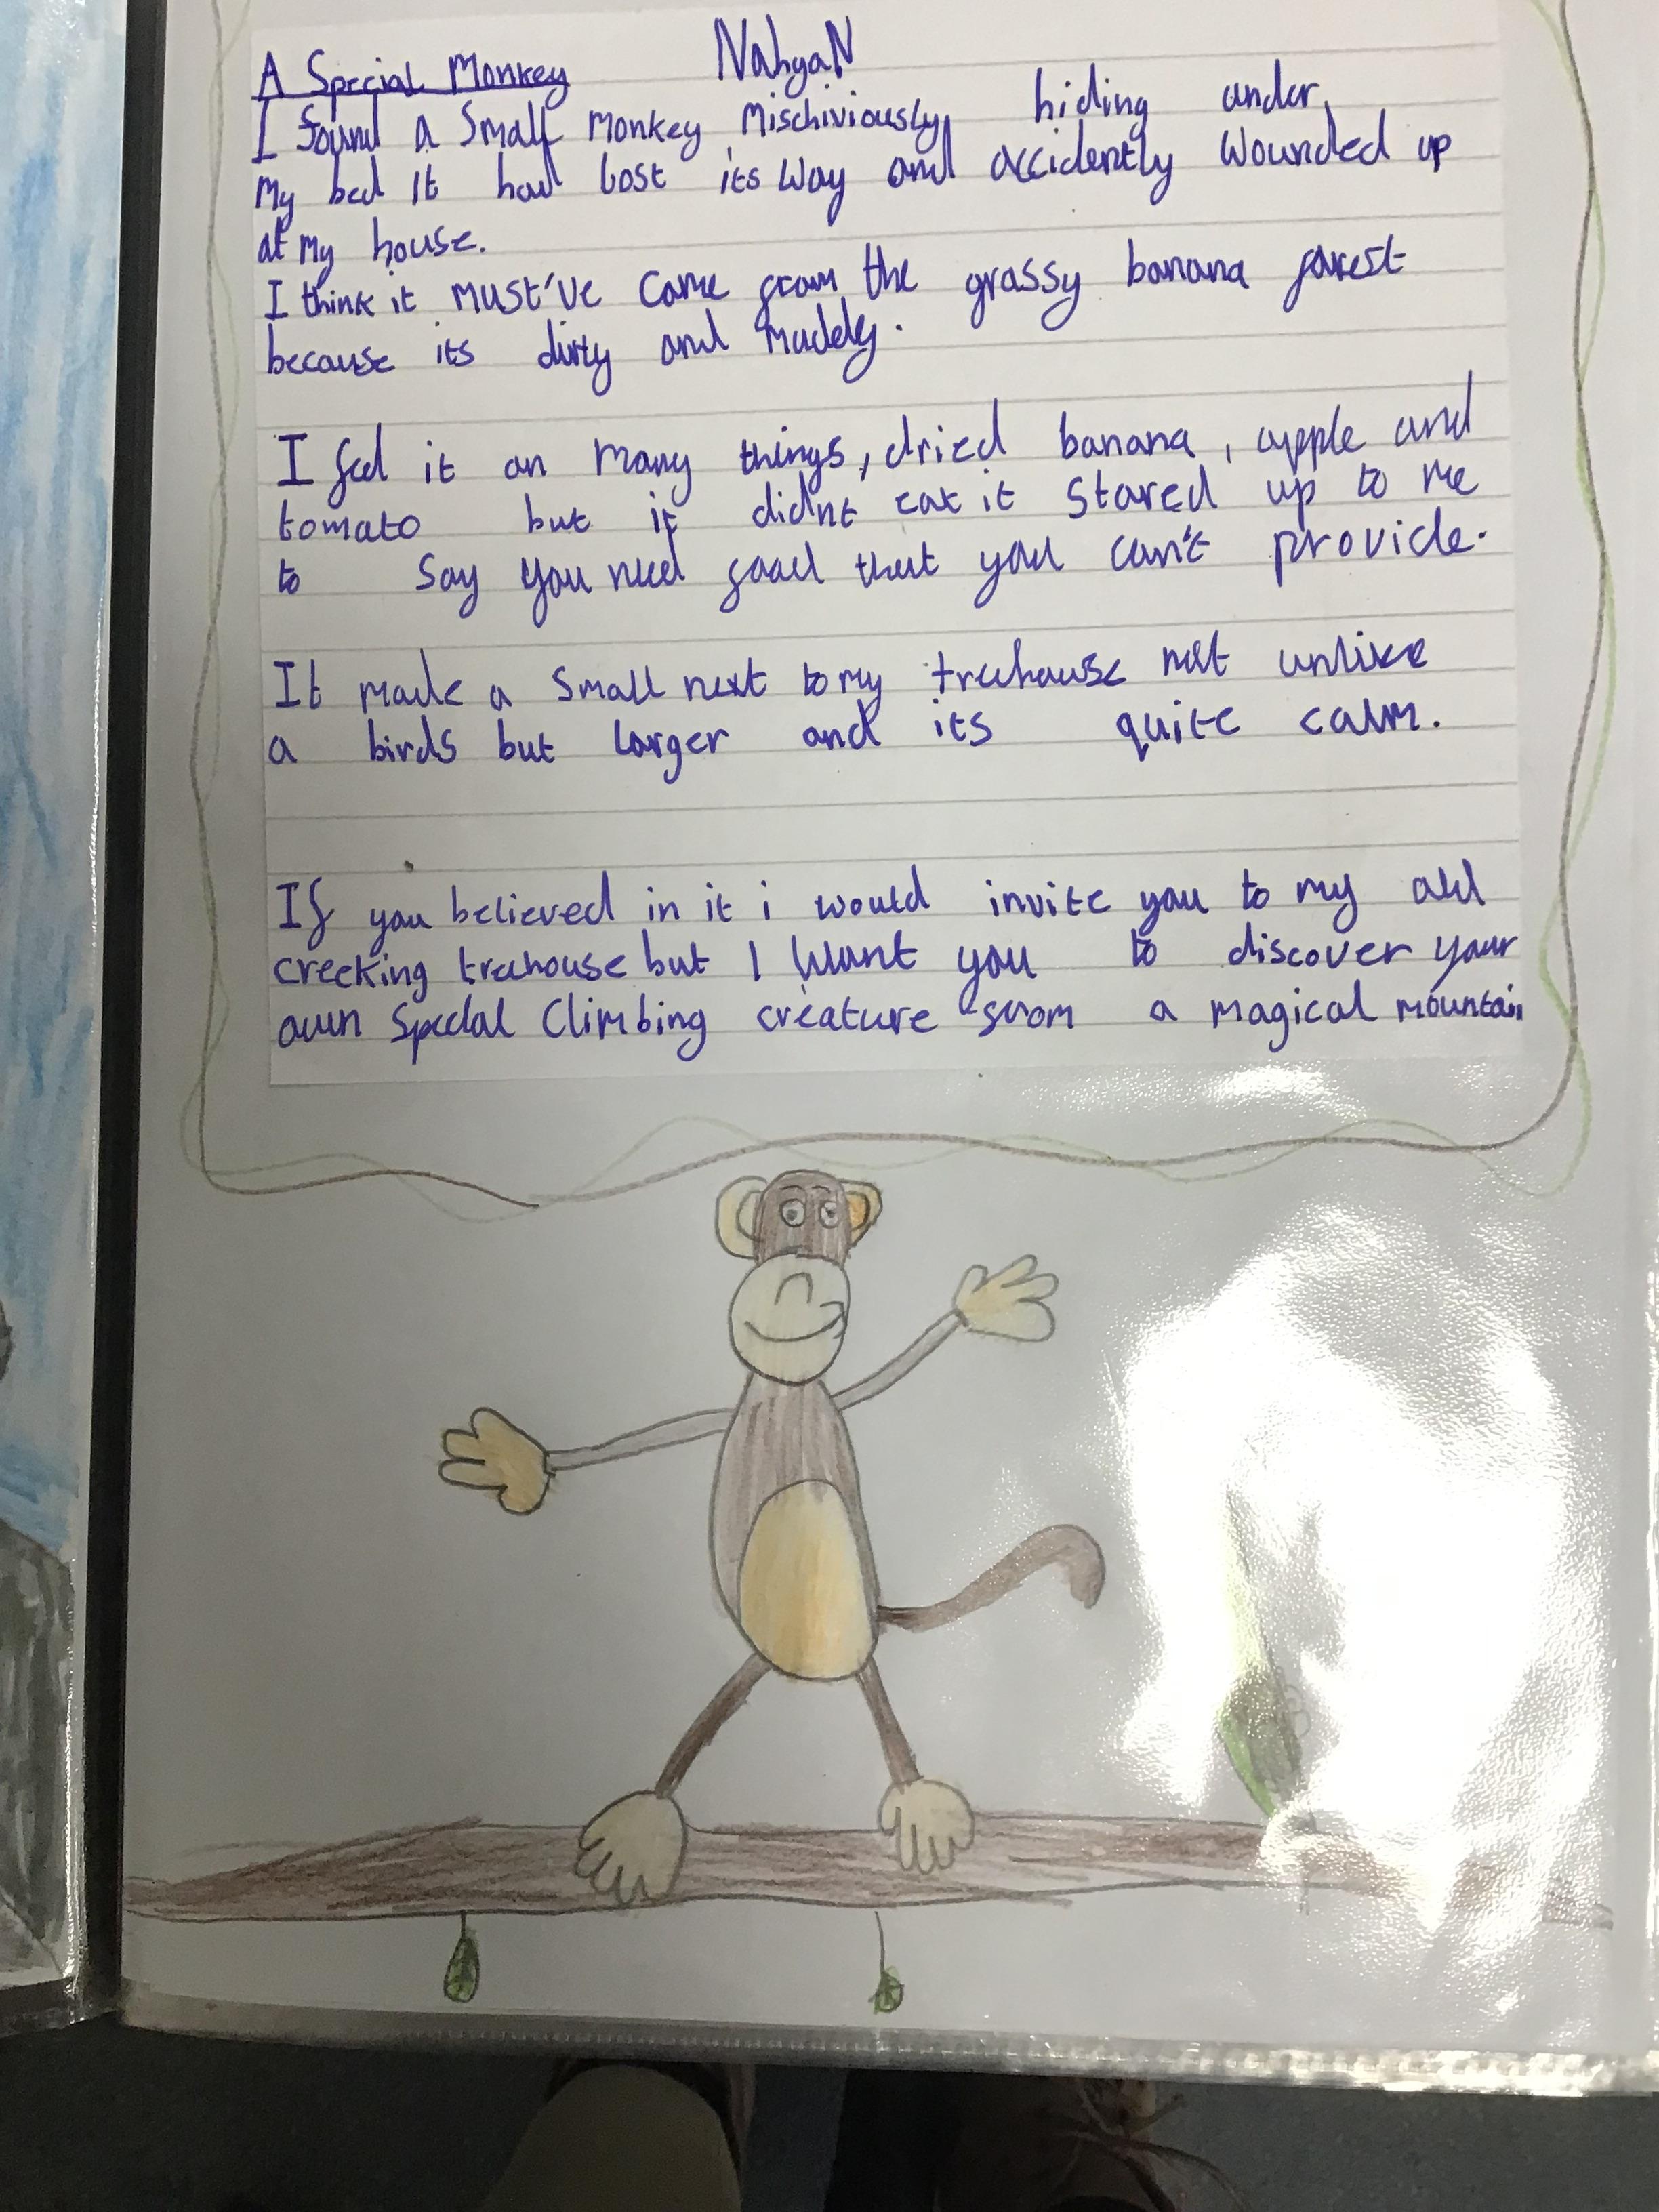 A Special Monkey NahyaN
I found a Small monkey Mischiviously, hiding under,
My bed It had lost its way and accidently Wounded up
at My house.
I think it must've came from the grassy banana forest
because its dirty and muddy.
I fed it on many things, dried banana, apple and
tomato but it didnt eat it stared up to me
to say you need food that you can't provide.
It made a small next to my treehouse not unlike
a birds but larger and its quite calm.
If you believed in it i would invite you to my old
creeking treehouse but I want you to discover your
own Special Climbing creature from a magical mountain